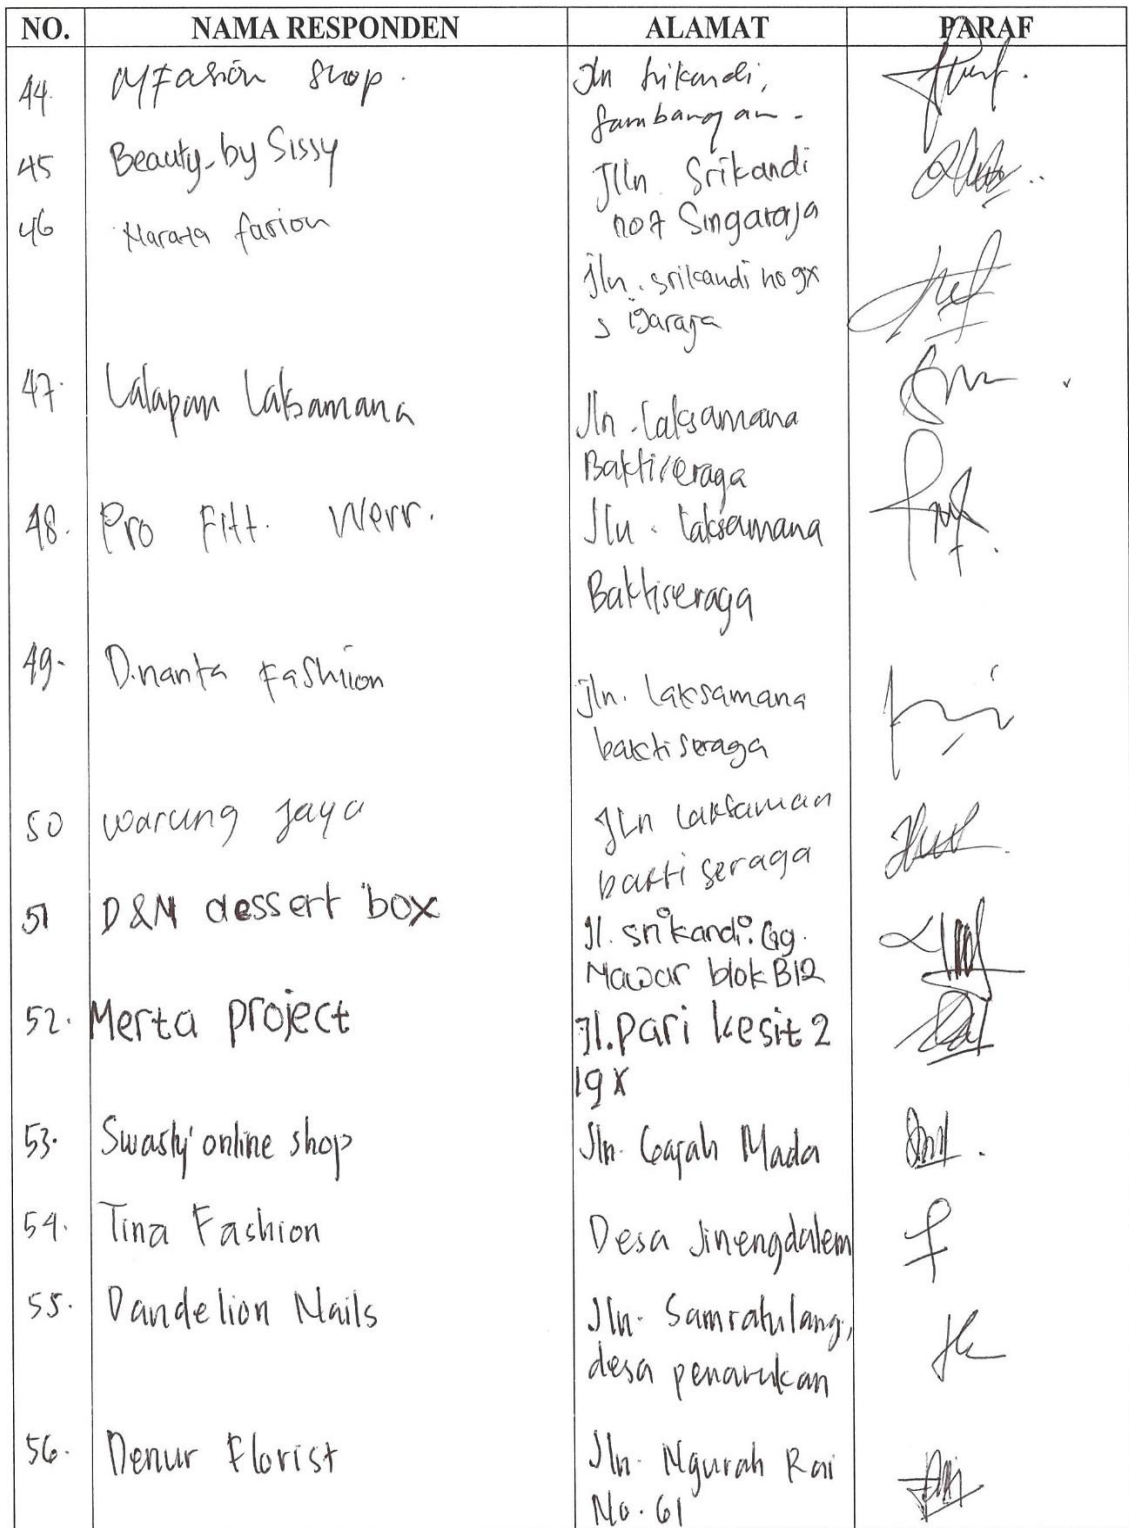 NO. NAMA RESPONDEN ALAMAT PARAF
44. Shop. Jln Srikandi,
Sambangan -
45 Beauty by Sissy Jlln Srikandi
no 7 Singaraja
46 fasion
Jln. srikandi no 9x
47. Lalapan Laksamana
Jln. Laksamana
Baktiseraga
48. Pro Fitt. Werr. Jln. Laksamana
Baktiseraga
49. D.nanta Fashiion Jln. Laksamana
bakti seraga
50 warung Jaya JLn Laksaman
bakti seraga
51 D&N dessert box Jl. srikandi. Gg.
Mawar blok B12
52. Merta project Jl. Pari kesit 2
19 X
53. Swasty' online shop Jln. Gajah Mada
54. Tina Fashion Desa Jinengdalem
55. Dandelion Nails Jln. Samratulang,
desa penarukan
56. Denur Florist Jln. Ngurah Rai
No. 61